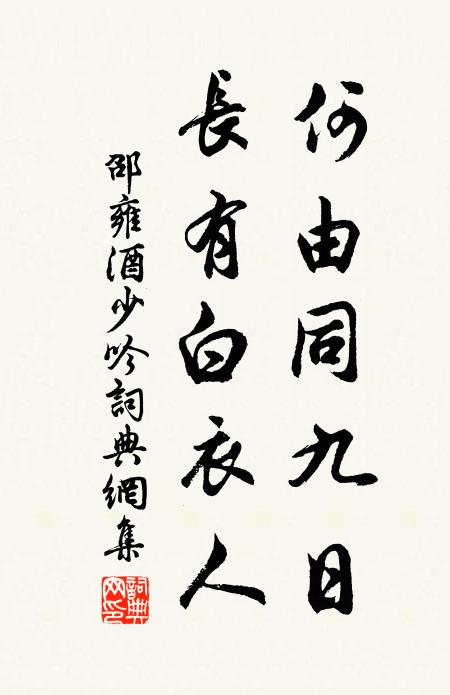 何由同九日
長有白衣人
邵雍酒少吟詞典網集
詞典
网印